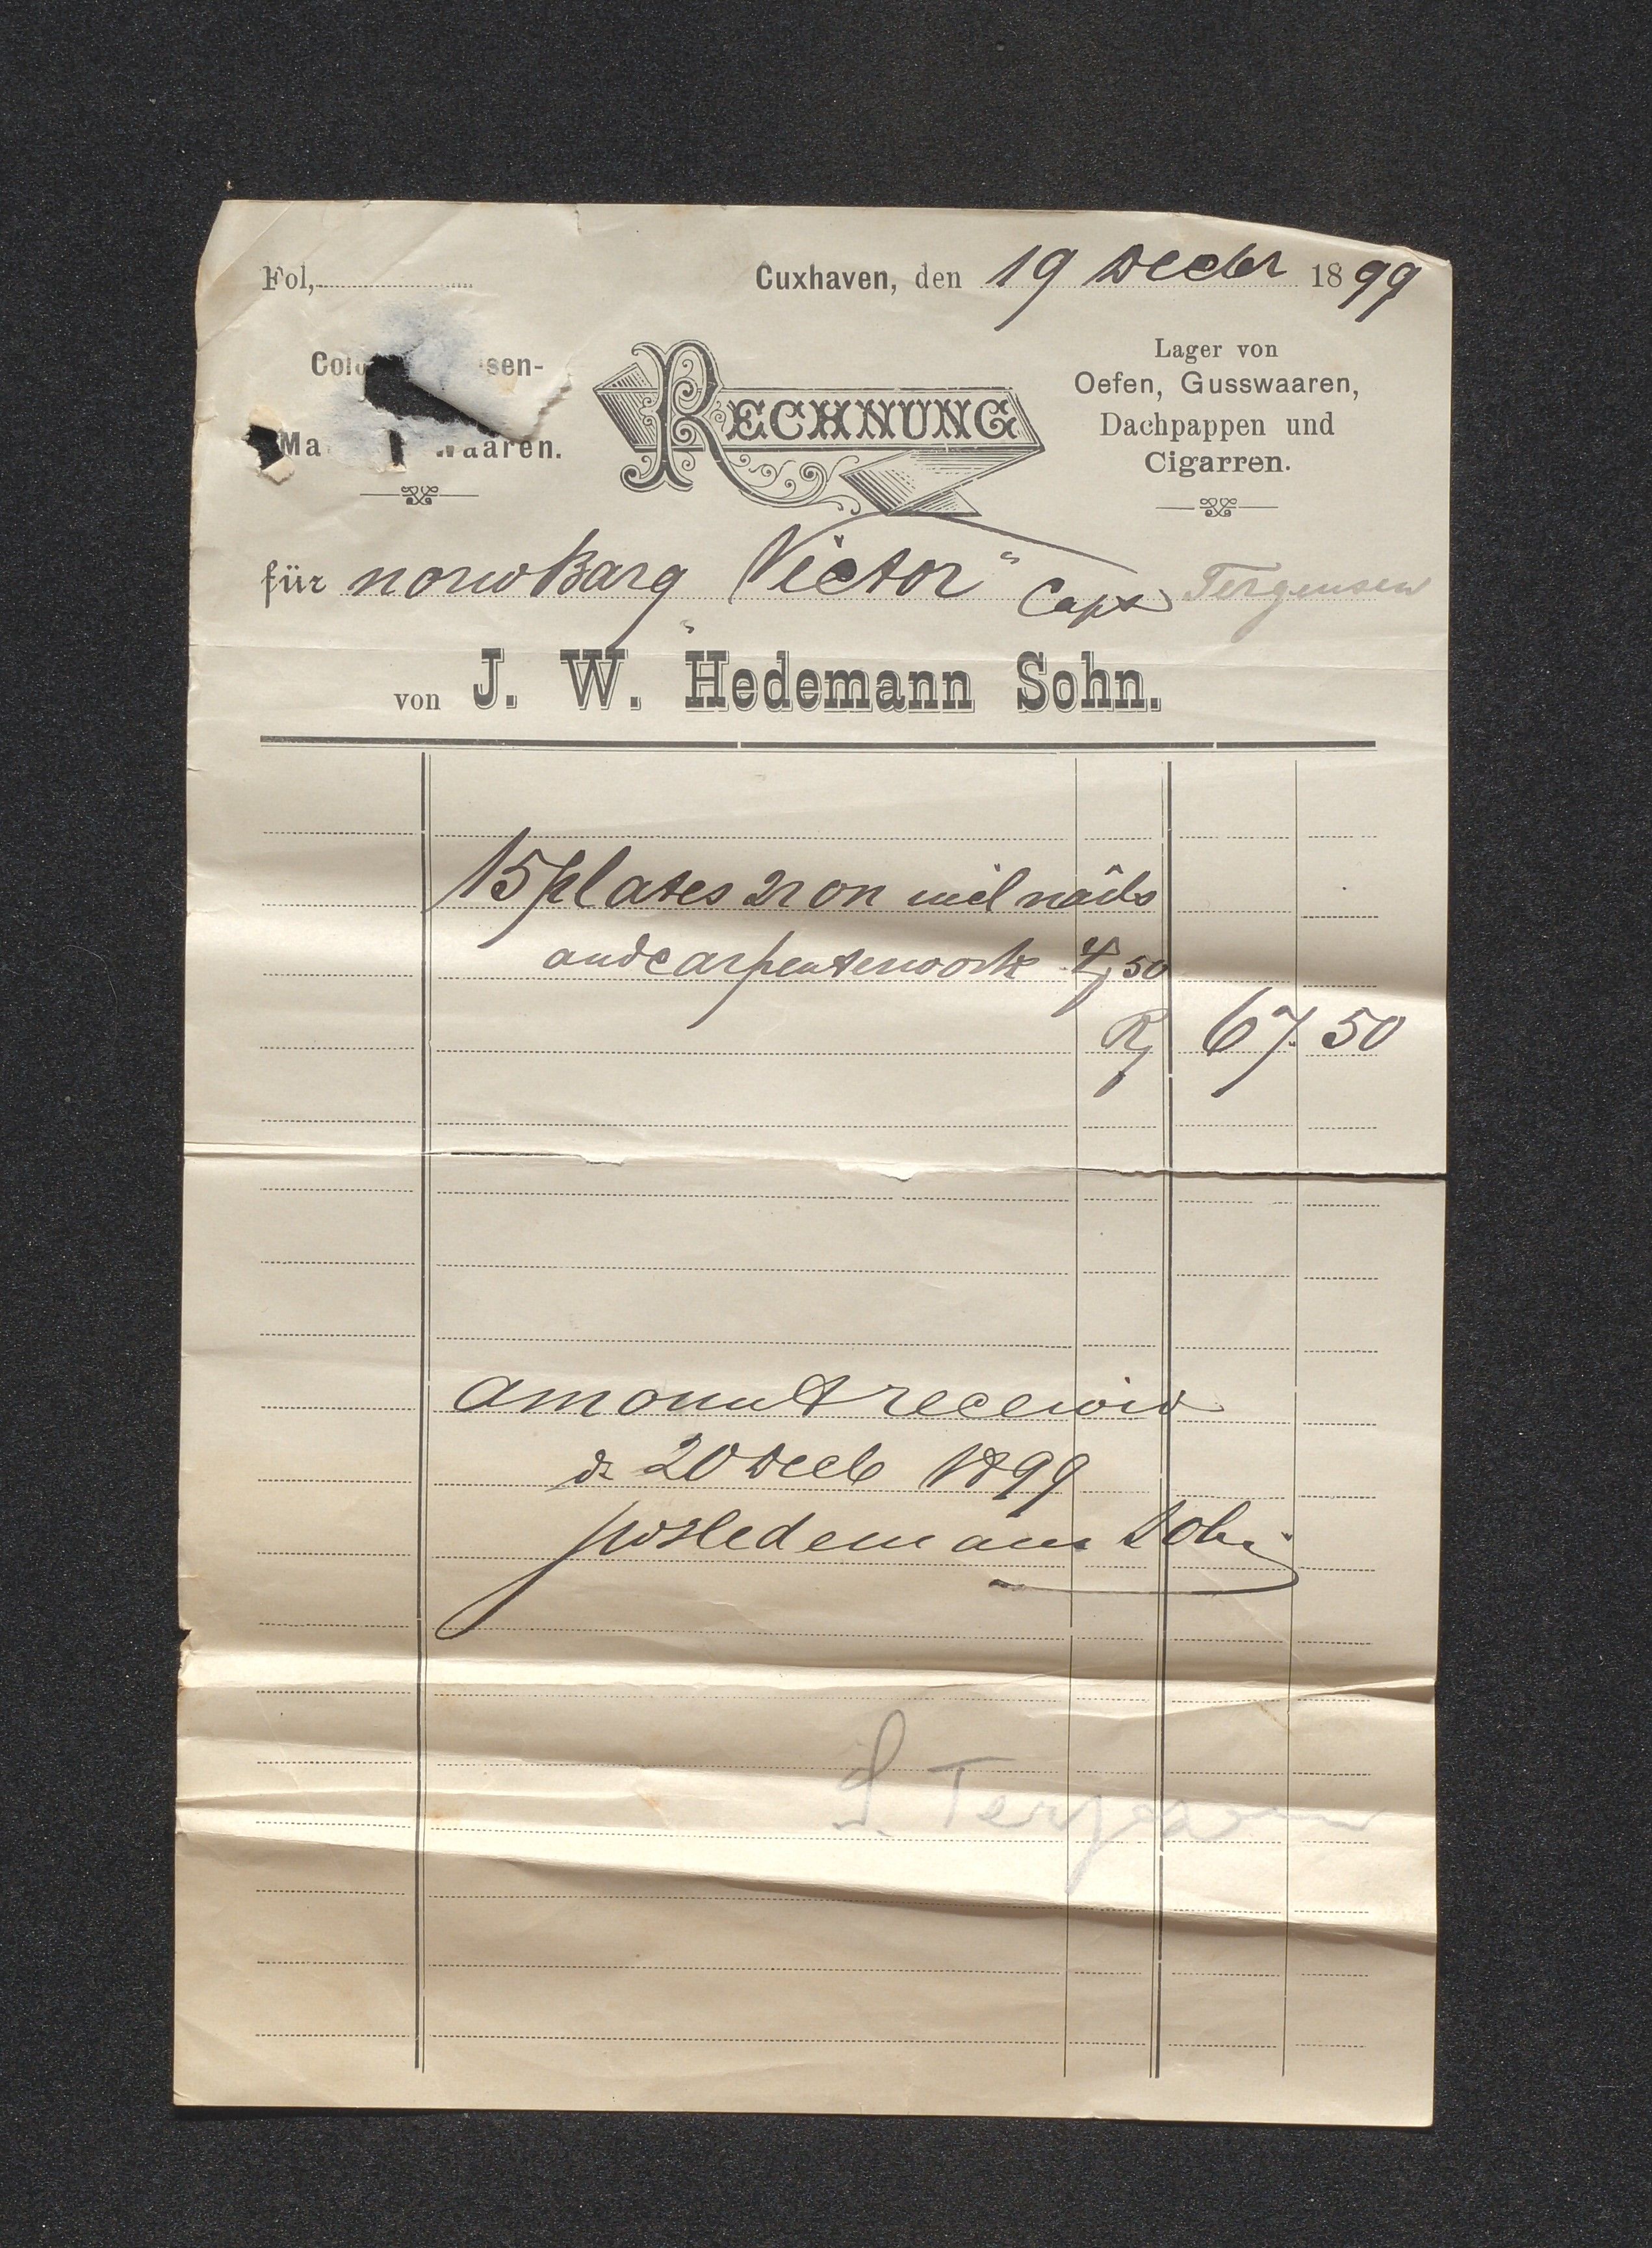 Fol,
Cuxhaven, den 19 Decbr 1899
Colo sen-
Ma waaren.
RECHNUNG
Lager von
Oefen, Gusswaaren,
Dachpappen und
Cigarren.
für norw Barg "Victor" Capt Tergensen
von J. W. Hedemann Sohn.
15 plates iron incl nails
and carpenterwork 4,50
67.50
amount received
d. 20 Decb 1899
JWHedemann Sohn
S. Terjesen